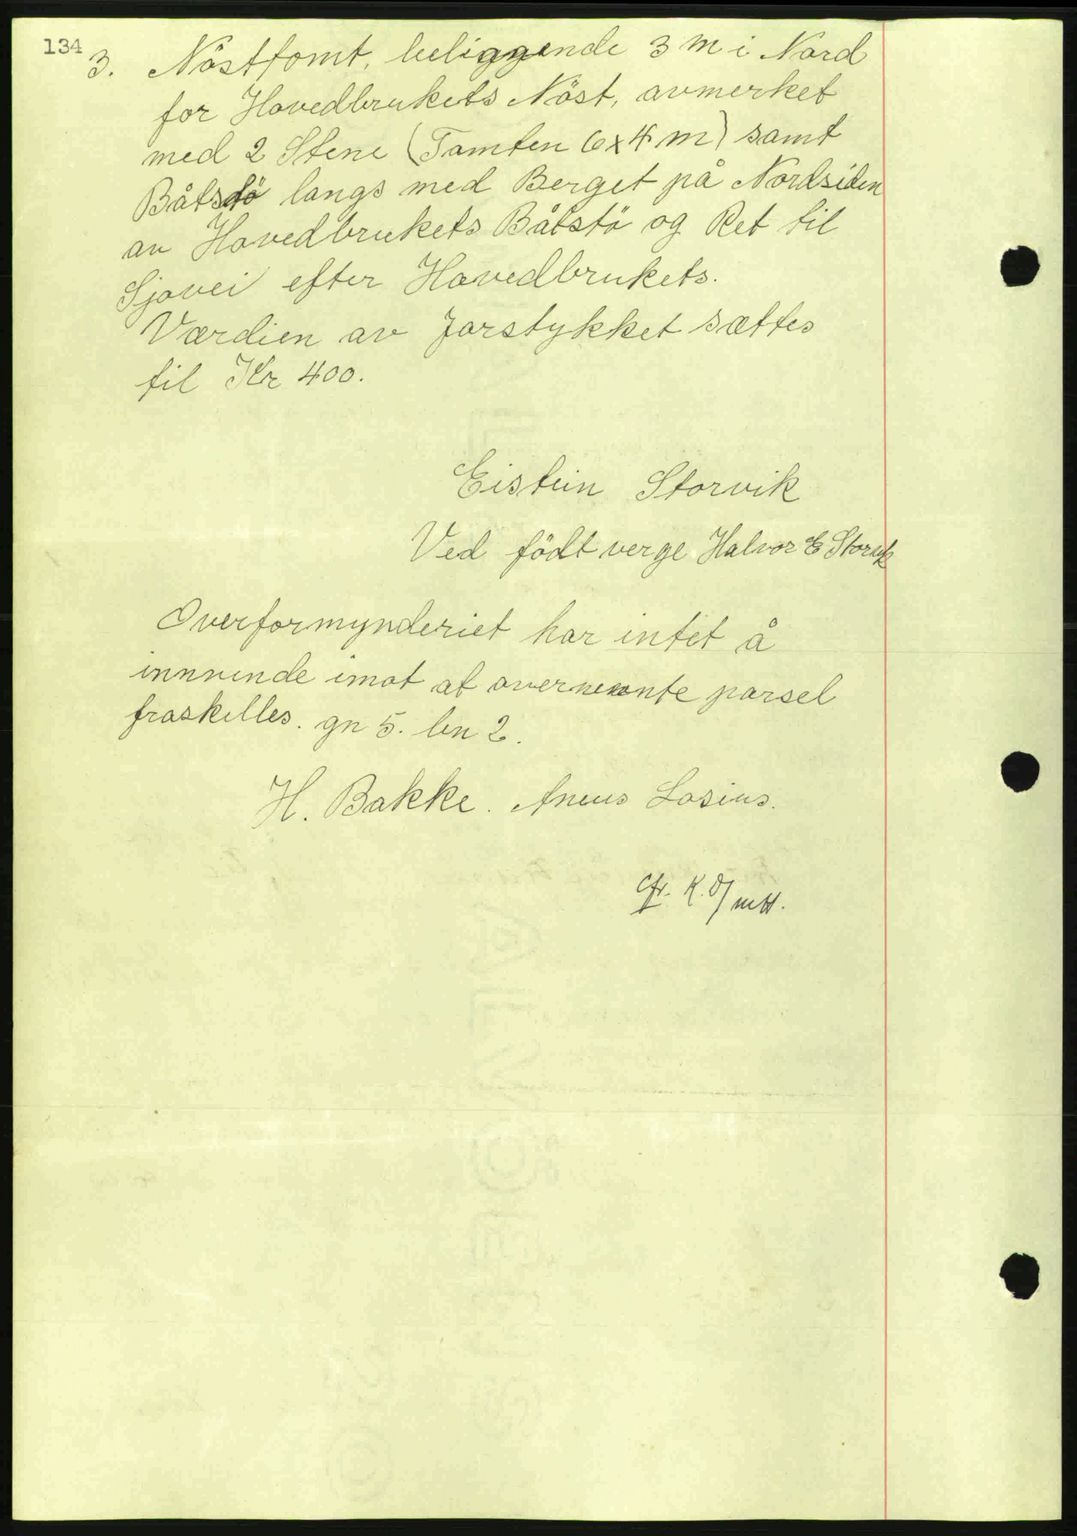 134
3. Nöstfomt, beliggende 3 m i Nord
for Hovedbrukets Nöst, avmerket
med 2 Stene (Tomten 6x4 m) samt
Båtstö langs med Berget på Nordsiden
av Hovedbrukets Båtstö og Ret til
Sjøvei efter Hovedbrukets.
Værdien av Jorstykket sættes
til Kr 400.
Eistein Storvik
Ved födt verge Halvor E Storvik
Overformynderiet har intet å
innvende imot at overnevnte parsel
fraskilles. gn 5. bn 2.
H. Bakke. Aneus Losius.
cfr. K.